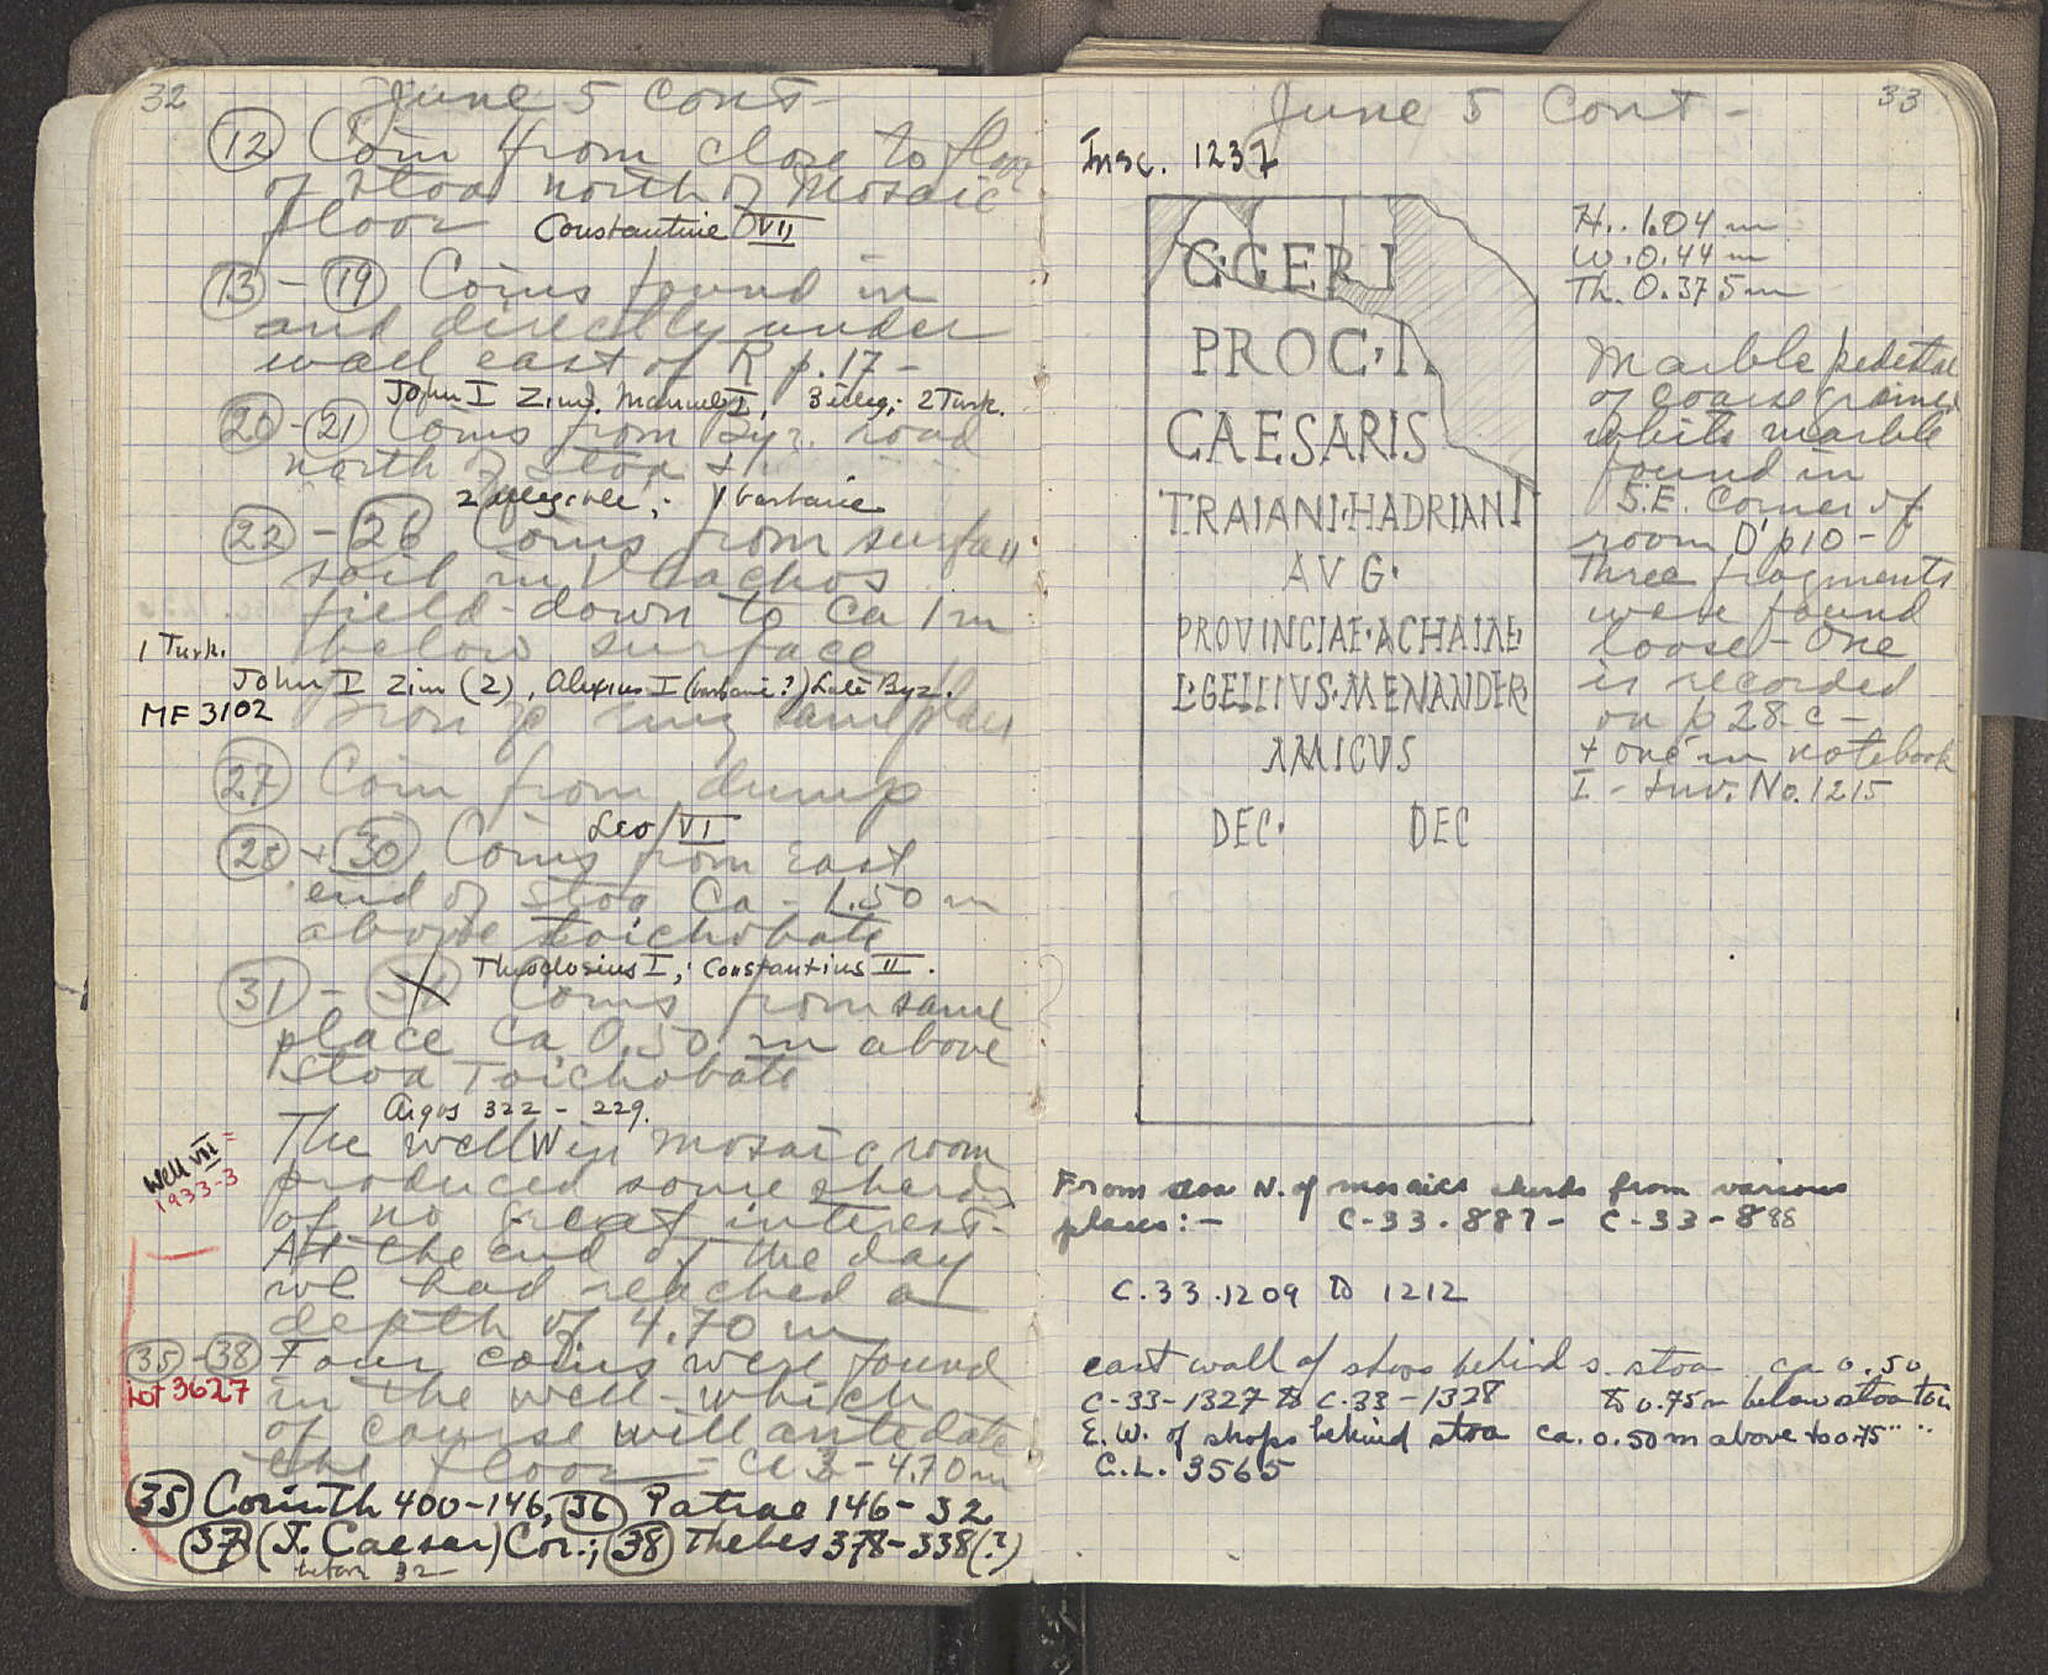 32
June 5 Cont-
(12) Coin from close to floor
of stoa north of Mosaic
floor Constantine VII
(13) - (19) Coins found in
and directly under
wall east of R p. 17 -
John I Zim. Manuel I, 3 illeg; 2 Turk.
(20) - (21) Coins from Byz. road
north of stoa +
2 illegible; 1 barbaric
(22) - (26) Coins from surface
soil in Vlachos
field - down to Ca 1 m
below surface
1 Turk.
John I Zim (2), Alexius I (barbaric?) Late Byz.
MF 3102
Iron ring same place
(27) Coin from dump
Leo VI
(28) + (30) Coins from East
end of Stoa Ca - 1.50 m
above toichobate
Theodosius I,; Constantius II.
(31) - Coins from same
place Ca 0.50 m above
Stoa Toichobate
Argos 322 - 229.
Well VII =
1933-3
The well W in mosaic room
produced some sherds
of no great interest -
At the end of the day
we had reached a
depth of 4.70 m
(35) - (38) Four coins were found
Lot 3627
in the well - which
of course will antedate
the floor - 3 - 4.70 m
(35) Corinth 400-146, (36) Patrae 146-32
(37) (J. Caesar) Cor.; (38) Thebes 378-338(?)
before 32
33
June 5 Cont -
Insc. 1237
GGERI
PROC·I.
CAESARIS
TRAIANI·HADRIANI
AVG·
PROVINCIAE·ACHAIAE·
L·GELLIVS·MENANDER·
AMICVS
DEC· DEC
H.. 1.04 m
W. 0.44 m
Th. 0.375 m
Marble pedestal
of coarse grained
white marble
found in
S.E. Corner of
room D' p 10 -
Three fragments
were found
loose - One
is recorded
on p 28 - c -
+ one in notebook
I - Inv. No. 1215
From stoa N. of mosaics sherds from various
places :- C-33-887 - C-33-888
C.33.1209 to 1212
east wall of shops behind s. stoa ca 0.50
C-33-1327 to C.33-1328 to 0.75 m below stoa toi
E.W. of shops behind stoa ca. 0.50 m above to 0.75 " "
C.L. 3565